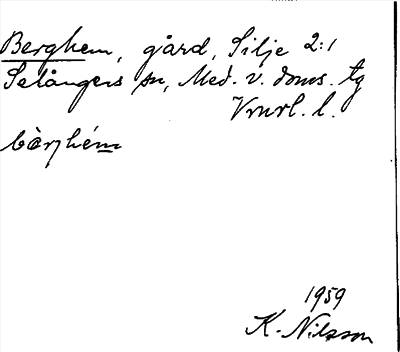 Berghem, gård, Silje 2:1
Selångers sn, Med. v. doms. tg
Vnrl. l.
bàrjhém
1959
K. Nilsson